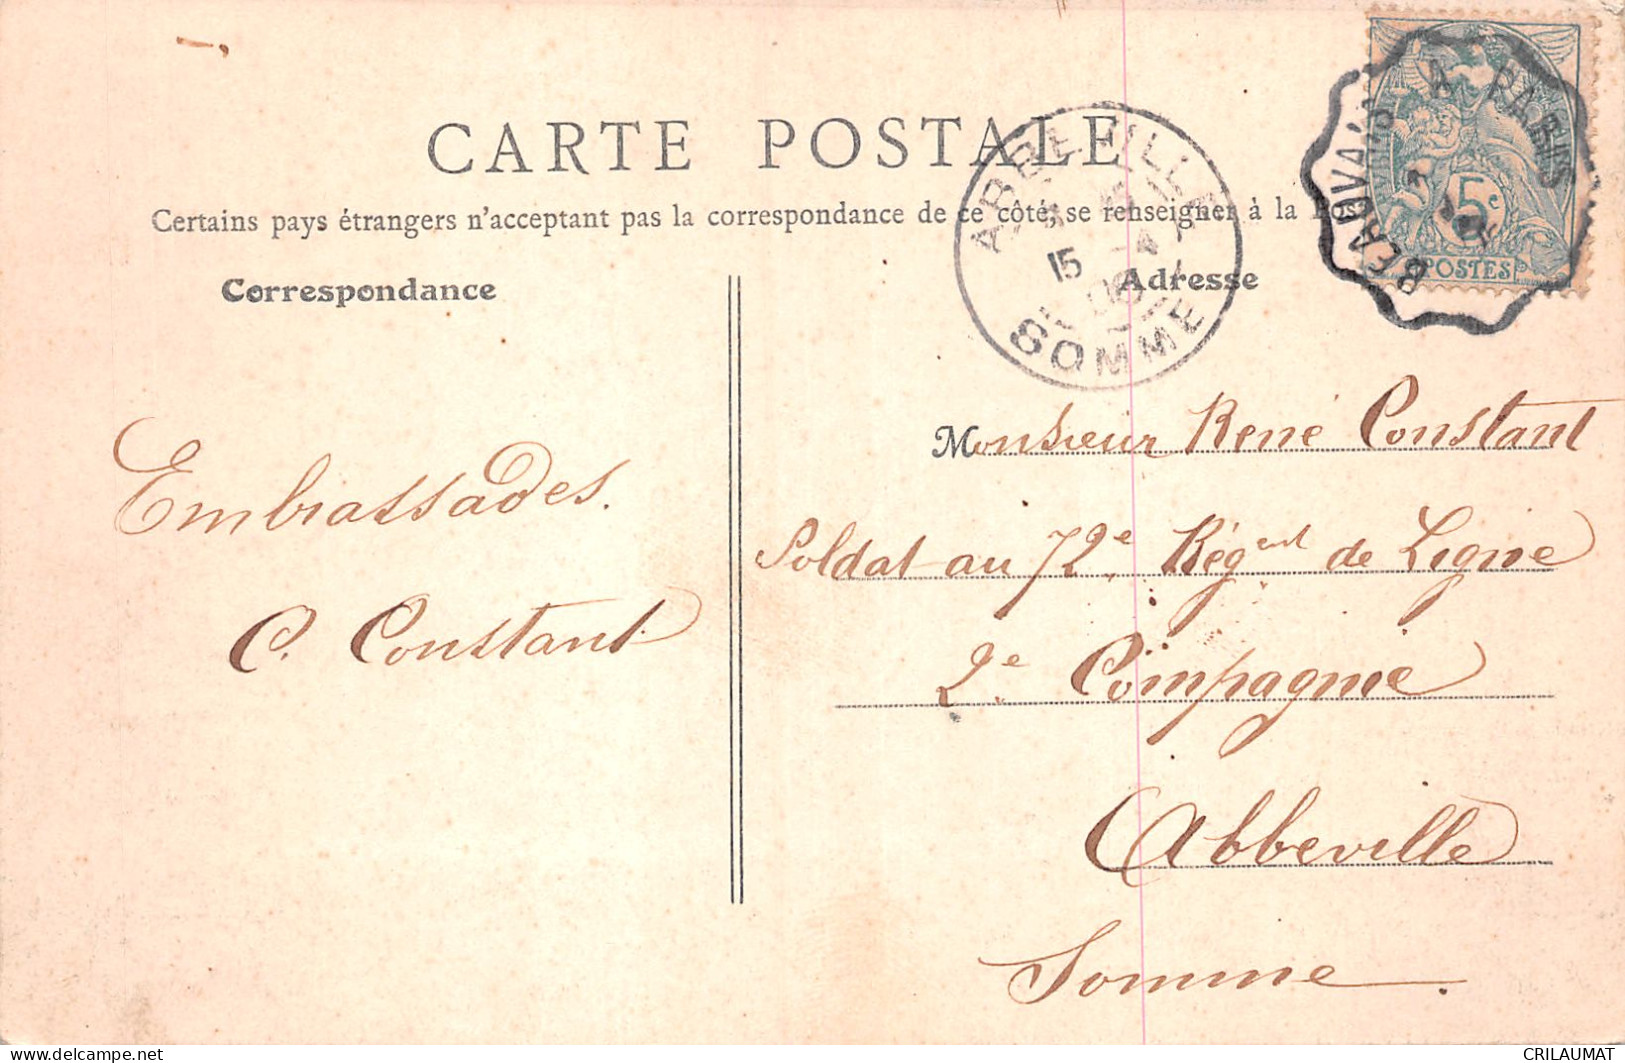 CARTE POSTALE
Certains pays étrangers n'acceptant pas la correspondance de ce côté, se renseigner à la
Correspondance
Adresse
ABBEVILLE
15 -4
08
SOMME
BEAUVAIS A PARIS
5c
POSTES
Embrassades.
C. Constant
Monsieur René Constant
Soldat au 72e Régent de Ligne
2e Compagnie
Abbeville
Somme.
delcampe.net
CRILAUMAT